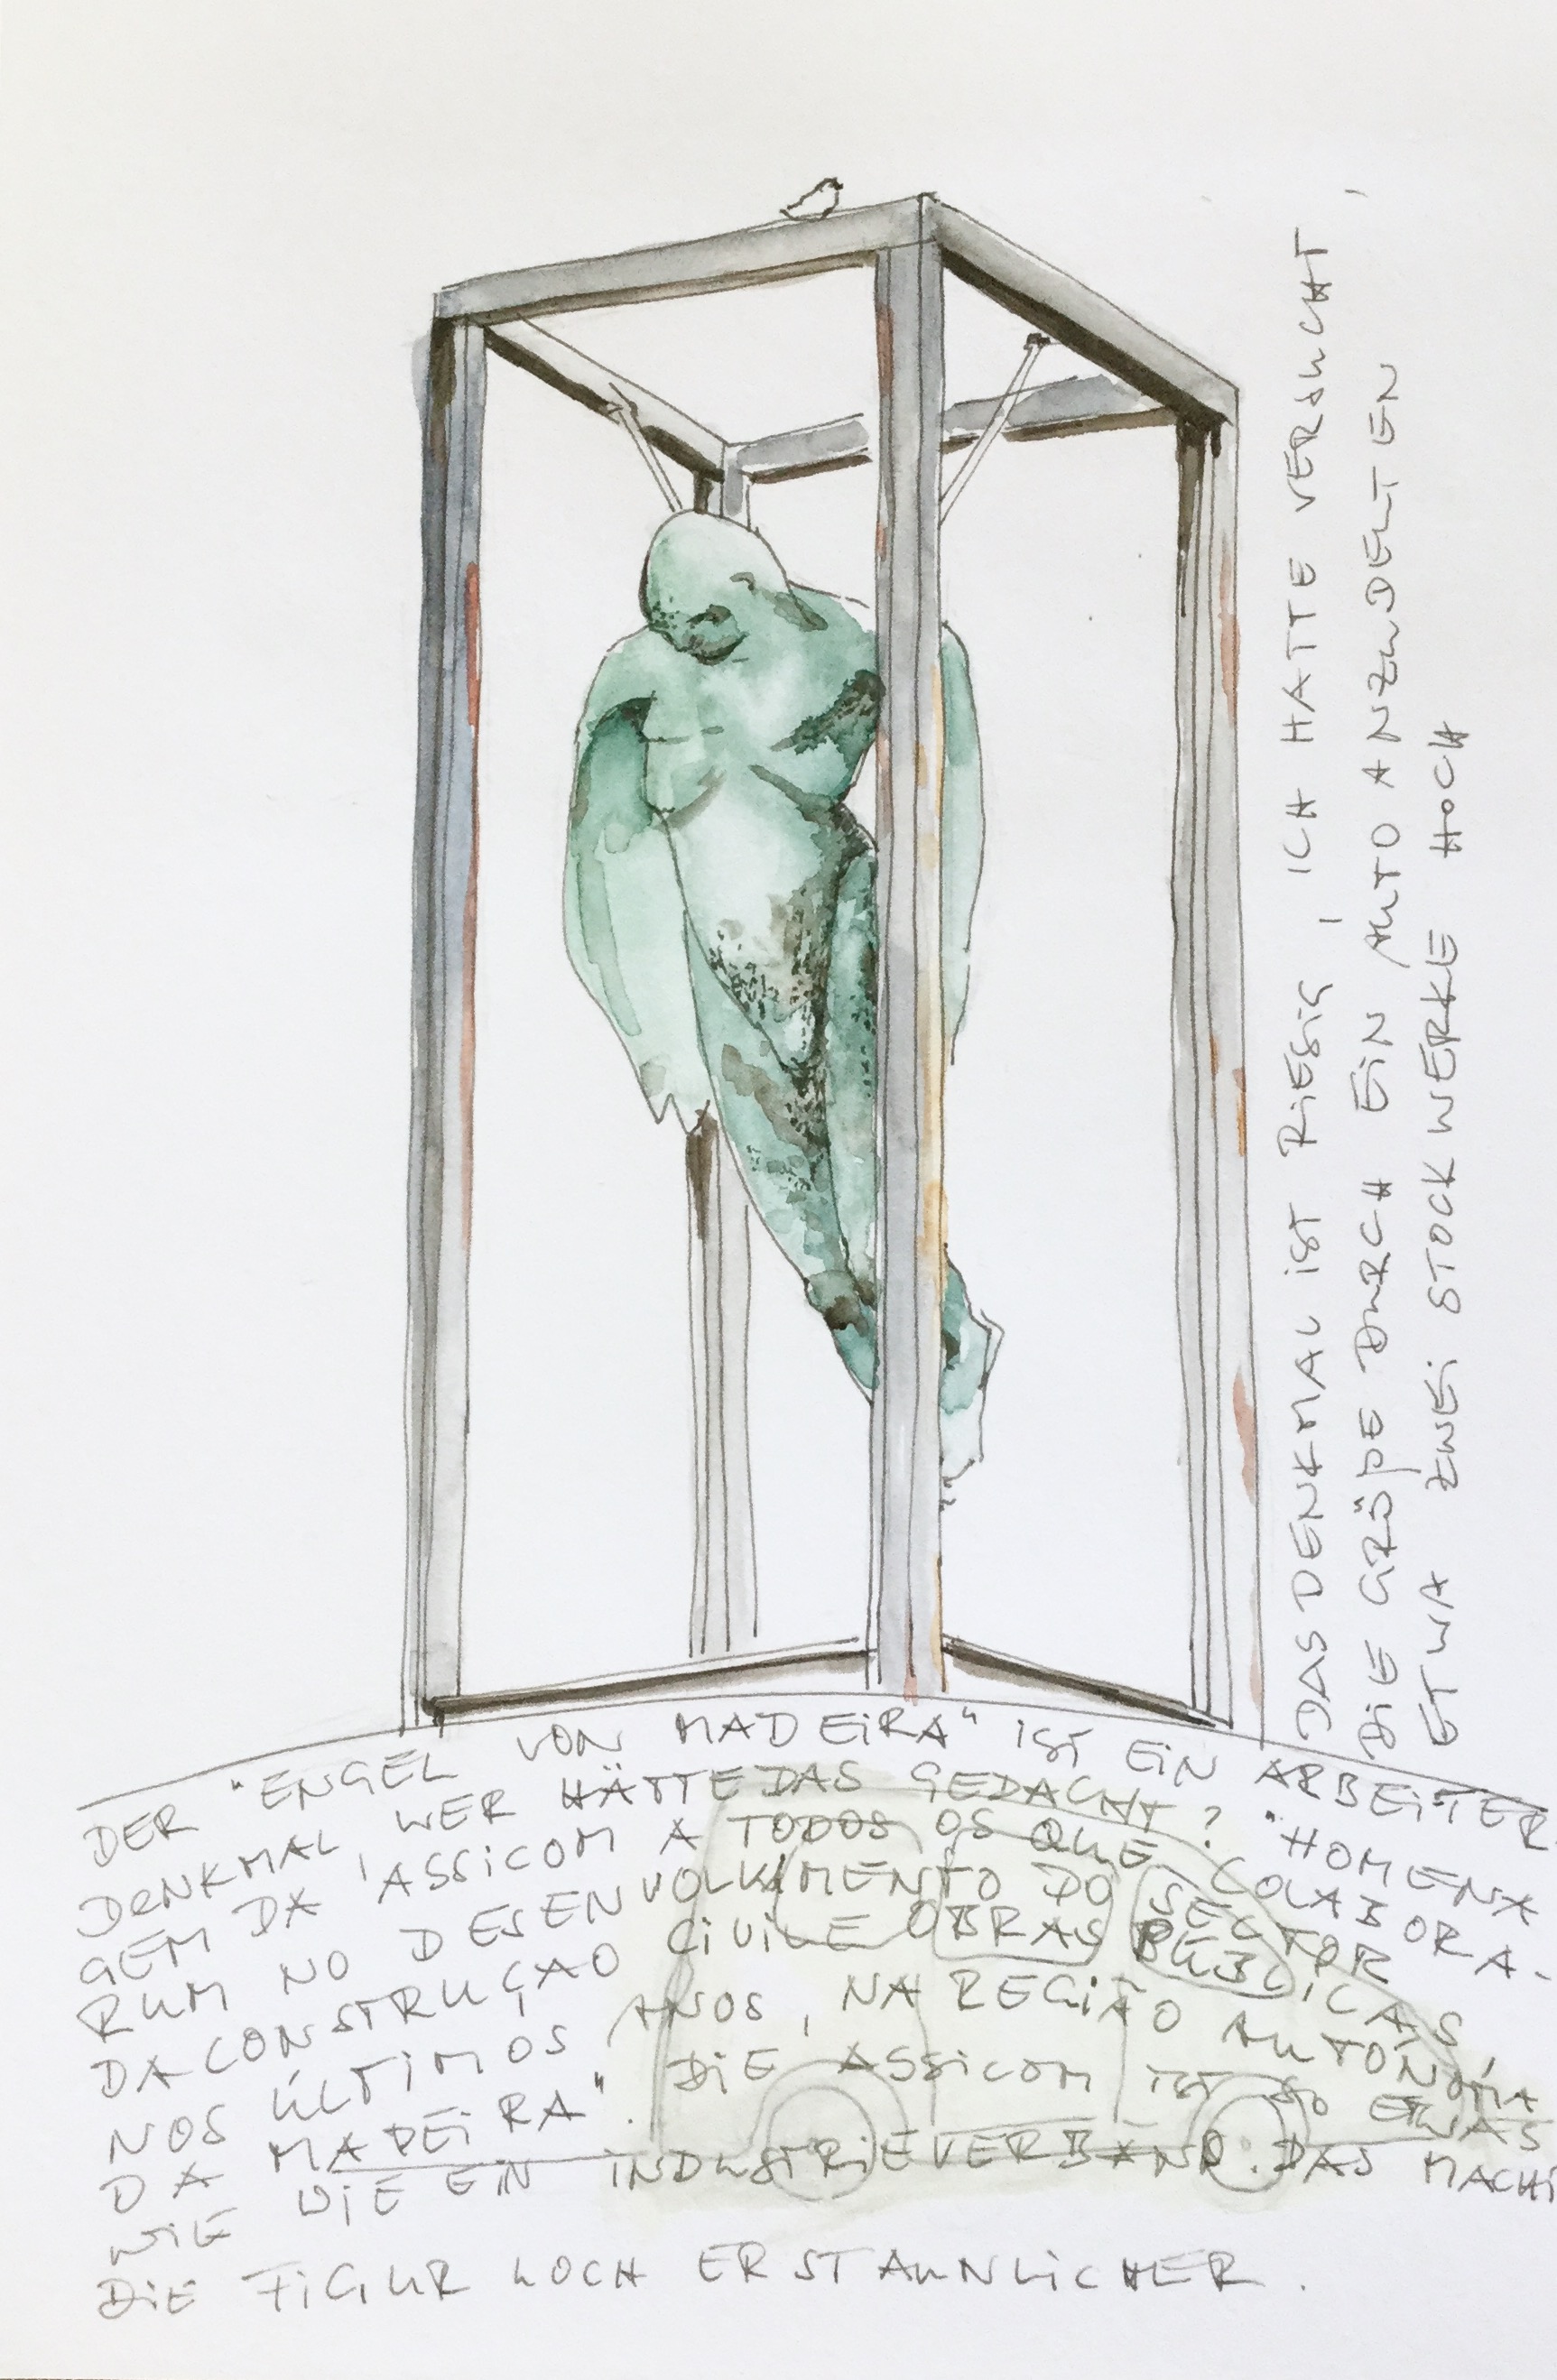 DAS DENKMAL IST RIESIG, ICH HATTE VERSUCHT,
DIE GRÖßE DURCH EIN AUTO ANZUDEUTEN
ETWA ZWEI STOCKWERKE HOCH
DER "ENGEL VON MADEIRA" IST EIN ARBEITER-
DENKMAL, WER HÄTTE DAS GEDACHT? "HOMENA
GEM DA ASSICOM A TODOS OS QUE COLABORA-
RUM NO DESENVOLVIMENTO DO SECTOR
DA CONSTRUÇAO CIVIL E OBRAS PÚBLICAS,
NOS ÚLTIMOS ANOS, NA REGIÃO AUTÓNOMA
DA MADEIRA". DIE ASSICOM IST SO ETWAS
WIE DIE EIN INDUSTRIEVERBAND. DAS MACHT
DIE FIGUR NOCH ERSTAUNLICHER.